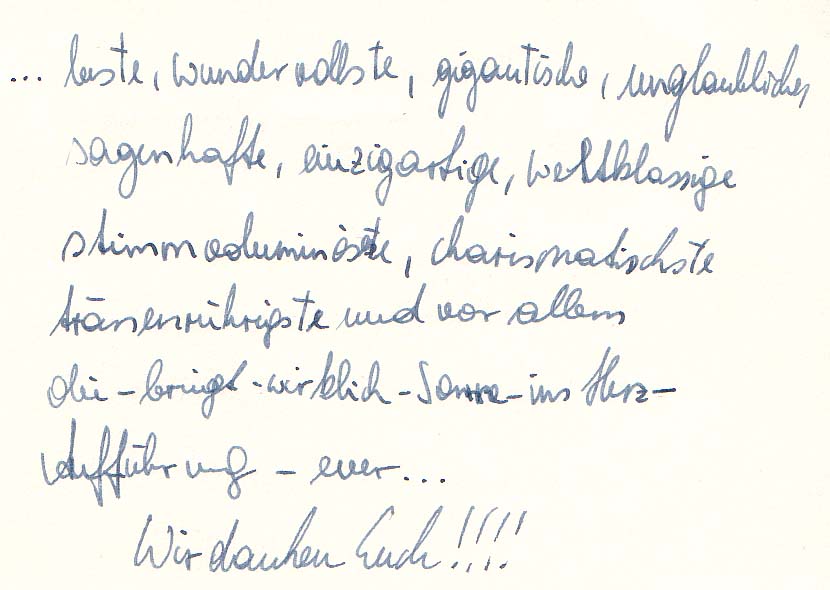 ... beste, wundervollste, gigantische, unglaubliche,
sagenhafte, einzigartige, weltklassige
stimmvoluminöste, charismatischste
tränenrührigste und vor allem
die - bringt - wirklich - Sonne - ins Herz -
Aufführung - ever...
Wir danken Euch!!!!!